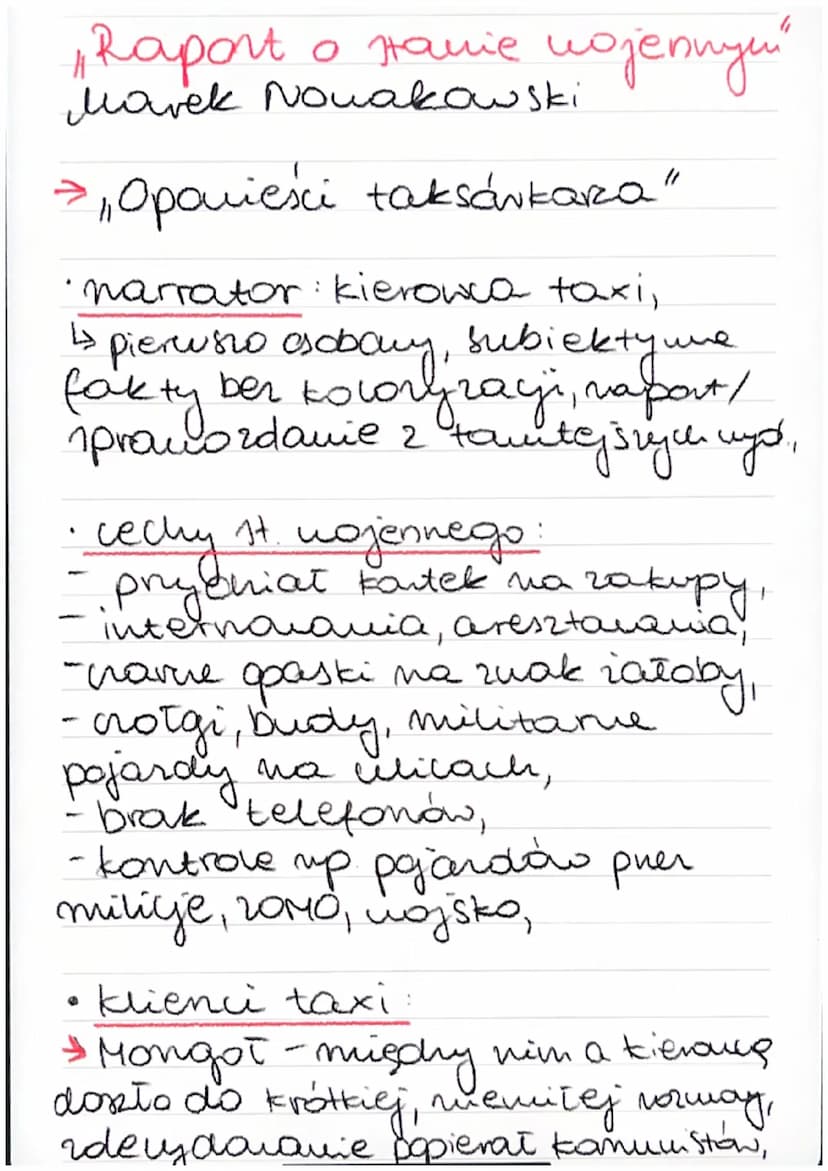 „Raport o stanie wojennym"
Marek Nowakowski
→ „Opowieści taksówkarza"
· narrator: kierowca taxi,
↳ pierwszo osobowy, subiektywne
fakty bez koloryzacji, raport/
sprawozdanie z tamtejszych wyd.,
· cechy st. wojennego:
- przydział kartek na zakupy,
- internowania, aresztowania,
- czarne opaski na znak żałoby,
- czołgi, budy, militarne
pojazdy na ulicach,
- brak telefonów,
- kontrole np. pojazdów przez
milicje, ZOMO, wojsko,
• klienci taxi:
→ Mongoł - między nim a kierowcą
doszło do krótkiej, niemiłej rozmowy,
zdecydowanie popierał komunistów,